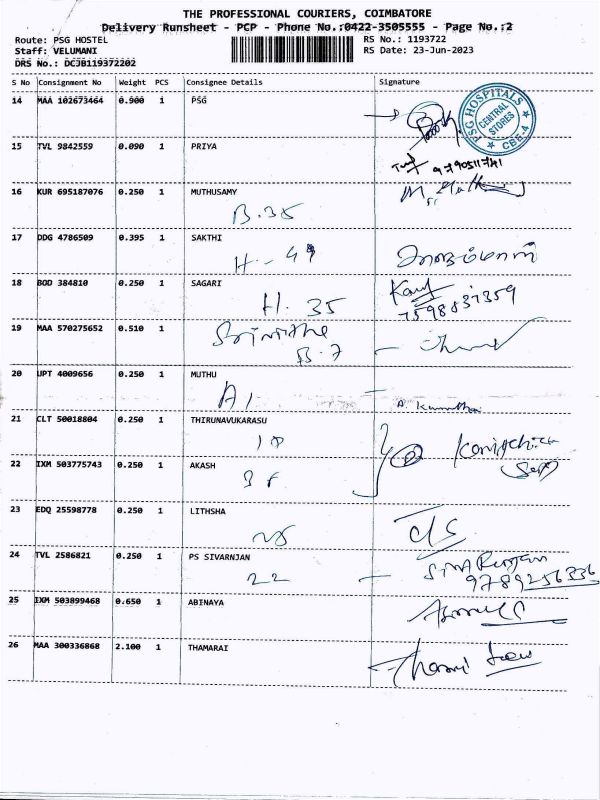 THE PROFESSIONAL COURIERS, COIMBATORE
Delivery Runsheet - PCP - Phone No.:0422-3505555 - Page No.:2
Route: PSG HOSTEL RS No.: 1193722
Staff: VELUMANI RS Date: 23-Jun-2023
DRS No.: DCJB119372202
S No Consignment No Weight PCS Consignee Details Signature
14 MAA 102673464 0.900 1 PSG
PSG HOSPITALS
CENTRAL STORES
CBE-4
15 TVL 9842559 0.090 1 PRIYA
9790511741
16 KUR 695187076 0.250 1 MUTHUSAMY
B.35
17 DDG 4786509 0.395 1 SAKTHI
H-49
18 BOD 384810 0.250 1 SAGARI
H. 35 7598837359
19 MAA 570275652 0.510 1
Srinithe
B.7
20 UPT 4009656 0.250 1 MUTHU
A1
21 CLT 50018804 0.250 1 THIRUNAVUKARASU
10
22 IXM 503775743 0.250 1 AKASH
23 EDQ 25598778 0.250 1 LITHSHA
24 TVL 2586821 0.250 1 PS SIVARNJAN
22 9789256336
25 IXM 503899468 0.650 1 ABINAYA
26 MAA 300336868 2.100 1 THAMARAI